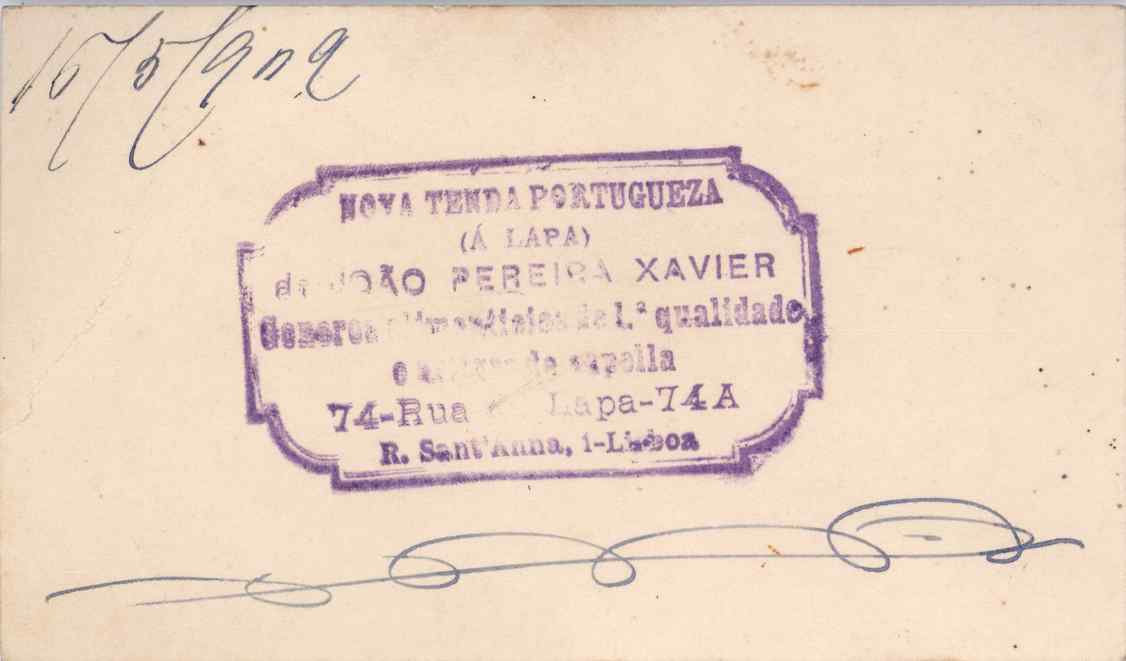 15/5/909
NOVA TENDA PORTUGUEZA
(Á LAPA)
de JOÃO PEREIRA XAVIER
Generos alimenticios de 1.ª qualidade
e de capella
74-Rua Lapa-74A
R. Sant'Anna, 1-Lisboa